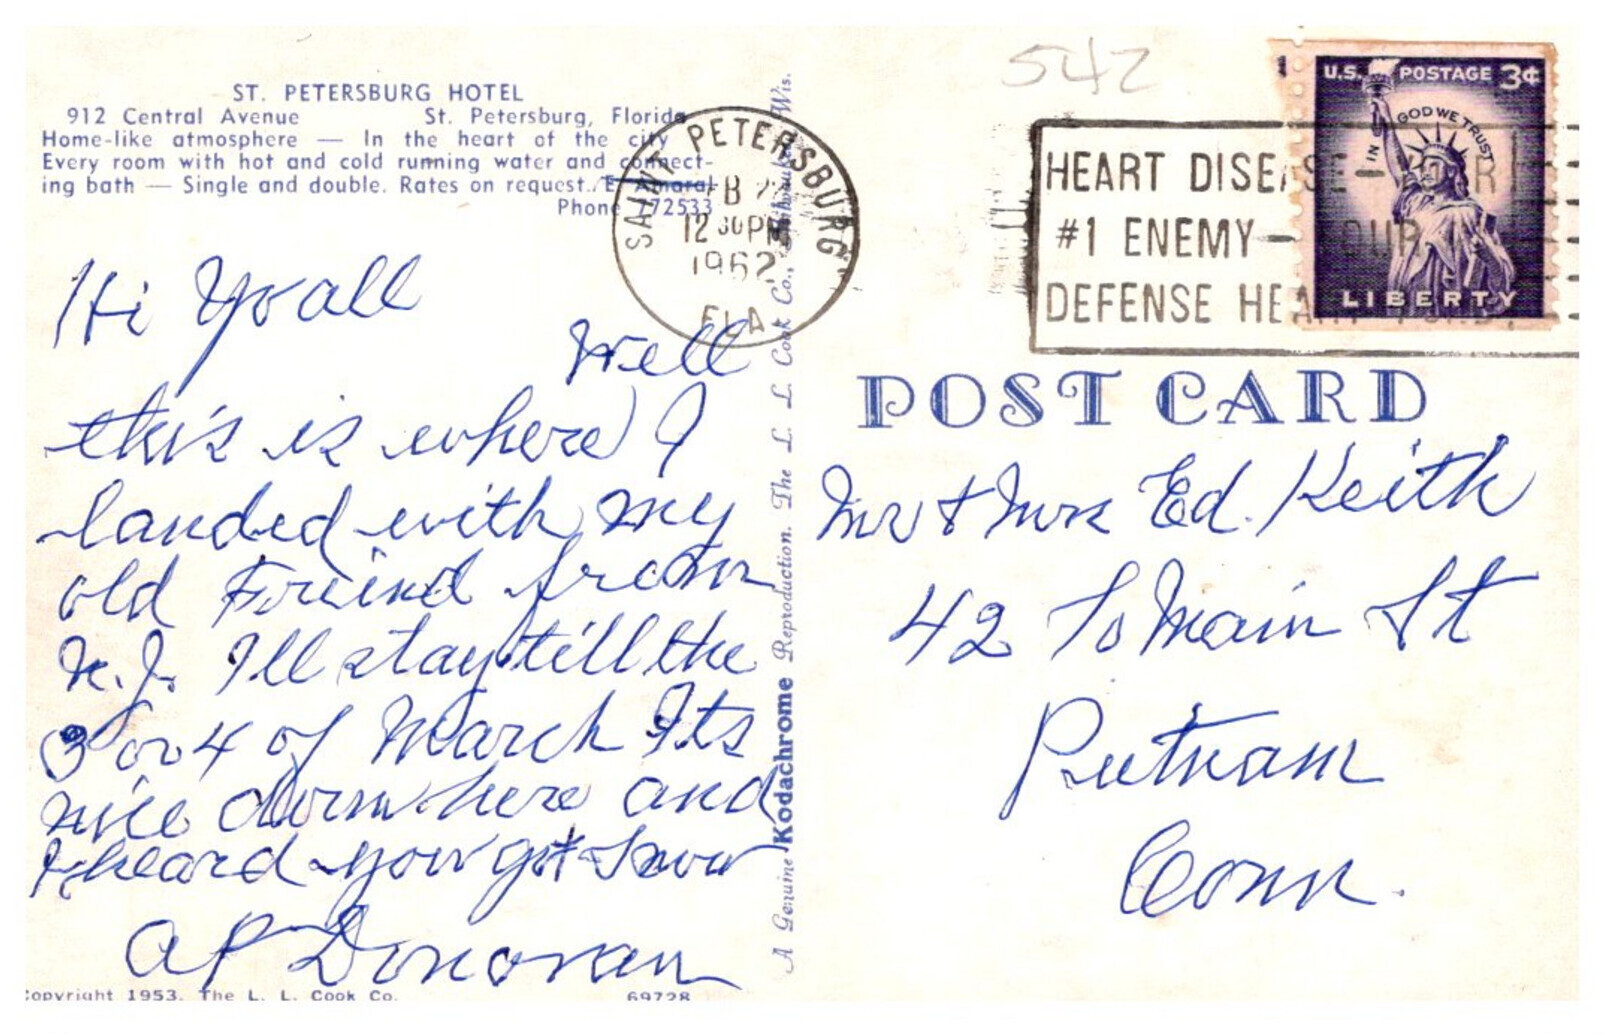 ST. PETERSBURG HOTEL
912 Central Avenue St. Petersburg, Florida
Home-like atmosphere — In the heart of the city
Every room with hot and cold running water and connect-
ing bath — Single and double. Rates on request.
Phone 72533
Hi Yo all
Well
this is where I
landed with my
old Freind from
N.J. I'll stay till the
3 or 4 of March Its
nice down here and
I heard your got Snow
A P Donovan
Copyright 1953. The L. L. Cook Co.
69728
A Genuine Kodachrome Reproduction. The L. L. Cook Co., Wis.
SAINT PETERSBURG
12 30 PM
1962
FLA
542
HEART DISEASE—YOUR
#1 ENEMY—YOUR
DEFENSE HEART FUND.
U.S. POSTAGE 3¢
IN GOD WE TRUST
LIBERTY
POST CARD
Mr & Mrs Ed. Keith
42 So Main St
Putnam
Conn.